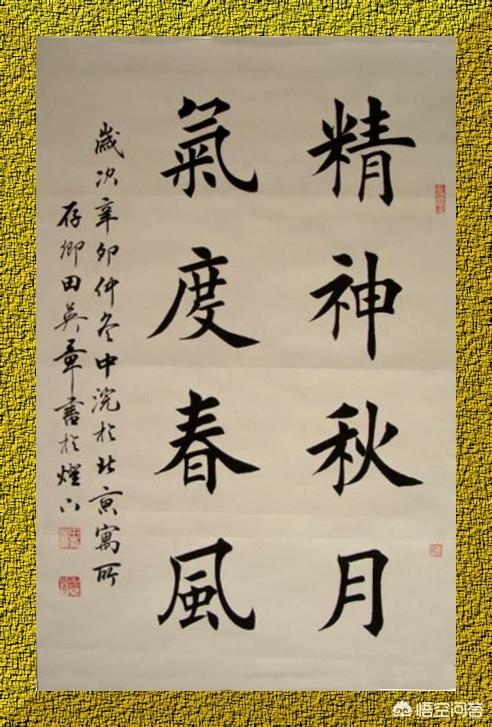 精神秋月
氣度春風
歲次辛卯仲冬中浣於北京寓所
存卿田英章書於燈下
悟空问答